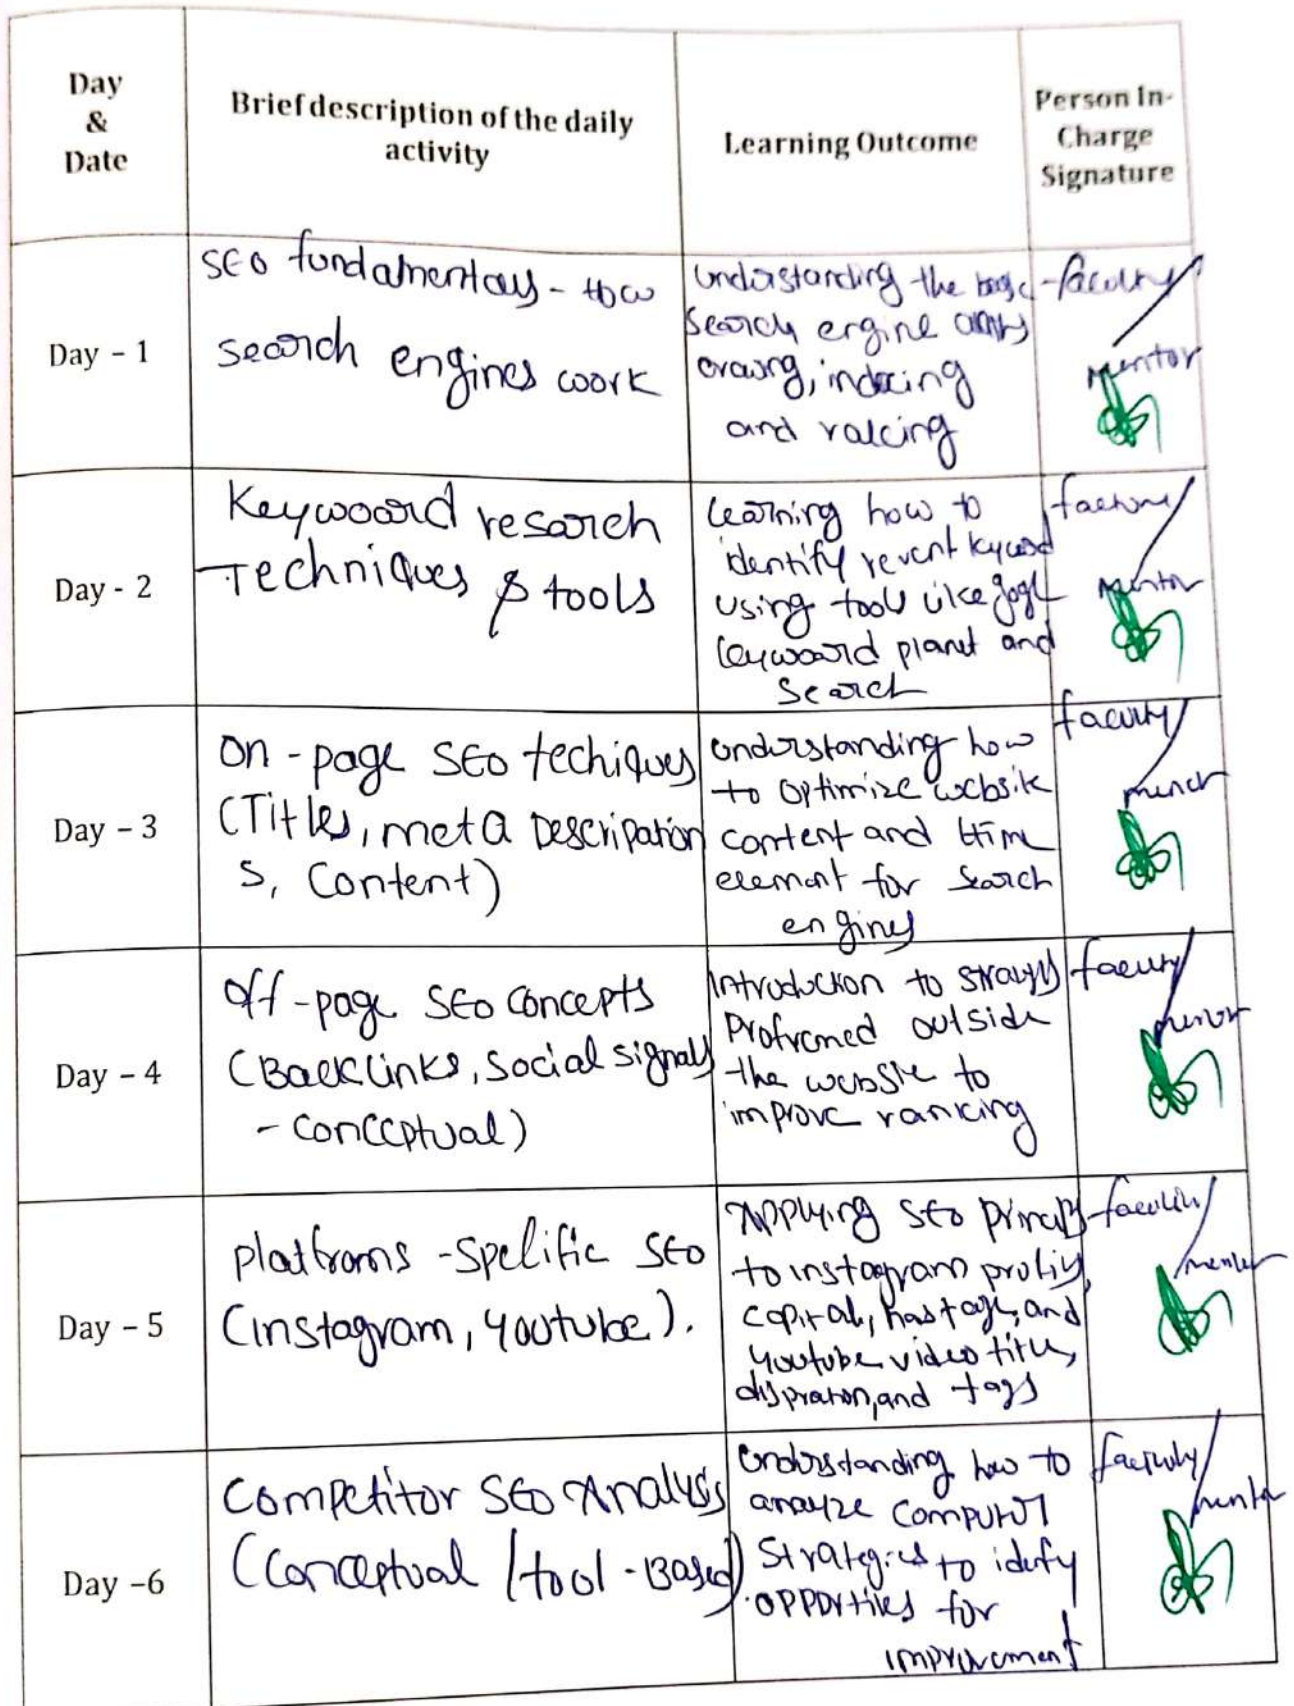 Day
&
Date
Brief description of the daily
activity
Learning Outcome
Person In-
Charge
Signature
Day – 1
SEO fundamentals - how
search engines work
understanding the basic
search engine
crawing, indexing
and
faculty/
mentor
Day - 2
Keywoard resarch
Techniques & tools
learning how to
identify
using tools like
keywoard planet and
search
faculty/
mentor
Day – 3
on - page SEO techiques
(Titles, meta Descripation
s, Content)
understanding how
to optimize website
content and
element for search
engines
faculty/
Day – 4
off - page SEO concepts
(Backlinks, social signals
- conceptual)
introduction to
outside
the website to
improve ranking
faculty/
Day – 5
platfroms - spelific SEO
(instagram, youtube).
Applying SEO
to instagram
hastags, and
youtube video
and tags
faculty/
menter
Day –6
competitor SEO Analysis
(Conceptual / tool - Based)
understanding how to
analyze
strategies to
for
improvement
faculty/
mentor